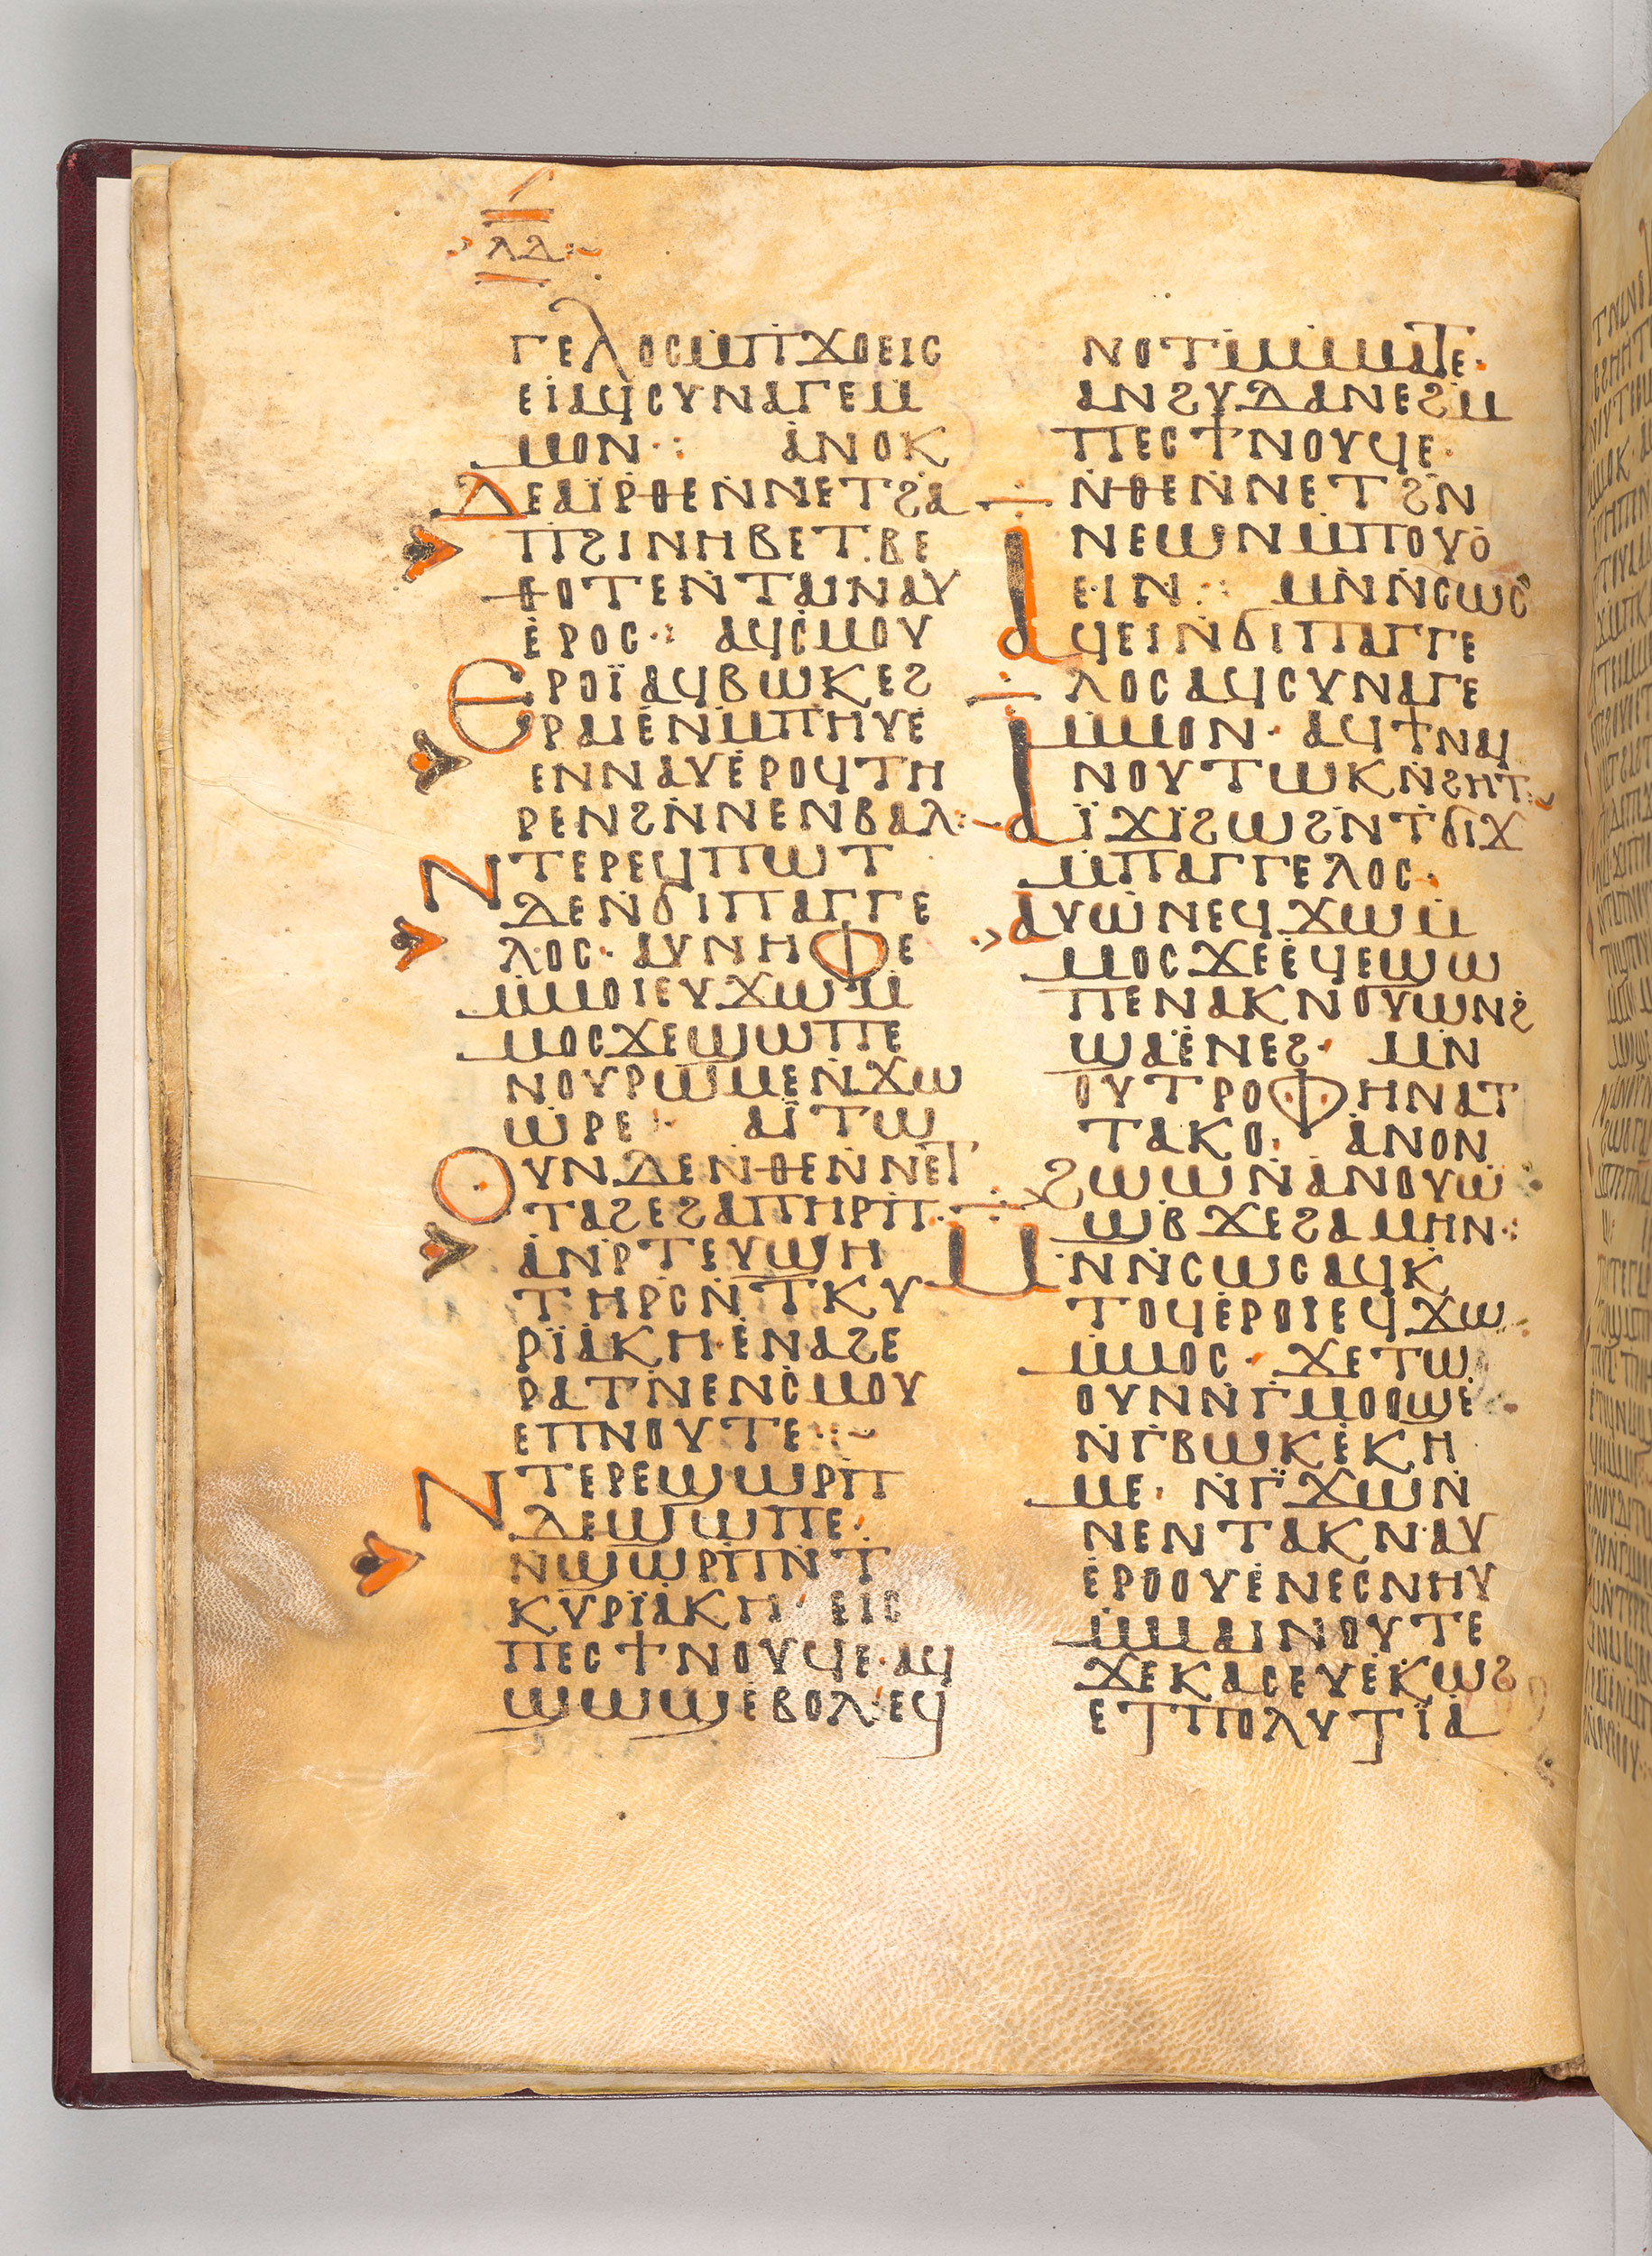 ⲗⲇ
ⲅⲉⲗⲟⲥⲙ̇ⲡϫⲟⲉⲓⲥ
ⲉⲓⲁϥⲥⲩⲛⲁⲅⲉⲙ̇
ⲙⲟⲛ·: ⲁⲛⲟⲕ
ⲇⲉⲁⲓⲣⲑⲉⲛ̇ⲛⲉⲧϩⲁ
ⲡϩⲓⲛⲏⲃⲉⲧ·ⲃⲉ
ⲑⲟⲧⲉⲛⲧⲁⲓⲛⲁⲩ
ⲉ̇ⲣⲟⲥ·: ⲁϥⲥⲙⲟⲩ
ⲉⲣⲟⲓ̈ⲁϥⲃⲱⲕⲉϩ
ⲣⲁⲓⲉ̇ⲛⲙ̇ⲡⲏⲩⲉ
ⲉⲛⲛⲁⲩⲉ̇ⲣⲟϥⲧⲏ
ⲣⲉⲛϩⲛ̇ⲛⲉⲛⲃⲁⲗ:-
ⲛⲧⲉⲣⲉϥⲡⲱⲧ
ⲇⲉⲛ̇ϭⲓⲡⲁⲅⲅⲉ
ⲗⲟⲥ·ⲁⲩⲛⲏⲫⲉ
ⲙ̇ⲙⲟⲓⲉⲩϫⲱⲙ̇
ⲙⲟⲥϫⲉϣⲱⲡⲉ
ⲛⲟⲩⲣⲱⲙⲉⲛ̇ϫⲱ
ⲱⲣⲉ·: ⲁⲓ̈ⲧⲱ
ⲟⲩⲛⲇⲉⲛⲑⲉⲛ̇ⲛⲉⲧ
ⲧⲁϩⲉϩⲁⲡⲏⲣⲡ·
ⲁⲛⲣⲧⲉⲩϣⲏ
ⲧⲏⲣⲥⲛ̇ⲧⲕⲩ
ⲣⲓ̈ⲁⲕⲏ·ⲉ̇ⲛⲁϩⲉ
ⲣⲁⲧⲛⲉⲛⲥⲙⲟⲩ
ⲉⲡⲛⲟⲩⲧⲉ·:-
ⲛⲧⲉⲣⲉϣⲱⲣⲡ
ⲇⲉϣⲱⲡⲉ·
ⲛϣⲱⲣⲡⲛ̇ⲧ
ⲕⲩⲣⲓ̈ⲁⲕⲏ· ⲉⲓⲥ
ⲡⲉⲥϯⲛⲟⲩϥⲉ·ⲁϥ
ϣⲱϣⲉ̇ⲃⲟⲗ·ⲉϥ
ⲛⲟⲧⲙ̇ⲙ̇ⲙⲁⲧⲉ·
ⲁⲛϩⲩⲇⲁⲛⲉϩⲙ̇
ⲡⲉⲥϯⲛⲟⲩϥⲉ·
ⲛ̇ⲑⲉⲛ̇ⲛⲉⲧϩⲛ̇
ⲛⲉⲱⲛⲙ̇ⲡⲟⲩⲟ̇
ⲉⲓⲛ·: ⲙⲛ̇ⲛ̇ⲥⲱⲥ
ⲁϥⲉⲓⲛ̇ϭⲓⲡⲁⲅⲅⲉ
ⲗⲟⲥⲁϥⲥⲩⲛⲁⲅⲉ
ⲙ̇ⲙⲟⲛ·ⲁϥϯⲛⲁⲓ̈
ⲛⲟⲩⲧⲱⲕⲛ̇ϩⲏⲧ:
ⲁⲓ̈ϫⲓ̈ϩⲱϩⲛ̇ⲧϭⲓϫ
ⲙ̇ⲡⲁⲅⲅⲉⲗⲟⲥ·
ⲁⲩⲱⲛⲉϥϫⲱⲙ̇
ⲙⲟⲥϫⲉⲉ̇ϥⲉϣⲱ
ⲡⲉⲛⲁⲕⲛⲟⲩⲱⲛϩ̇
ϣⲁⲉ̇ⲛⲉϩ· ⲙⲛ
ⲟⲩⲧⲣⲟⲫⲏⲛⲁⲧ
ⲧⲁⲕⲟ· ⲁⲛⲟⲛ
ϩⲱⲱⲛ̇ⲁⲛⲟⲩⲱ
ϣⲃϫⲉϩⲁⲙⲏⲛ·:
ⲙⲛ̇ⲛ̇ⲥⲱⲥⲁϥⲕ
ⲧⲟϥⲉ̇ⲣⲟⲓⲉϥϫⲱ
ⲙ̇ⲙⲟⲥ· ϫⲉⲧⲱ
ⲟⲩⲛⲛⲅ̇ⲙⲟⲟϣⲉ
ⲛ̇ⲅⲃⲱⲕⲉ̇ⲕⲏ
ⲙⲉ· ⲛ̇ⲅϫⲱⲛ̇
ⲛⲉⲛⲧⲁⲕⲛⲁⲩ
ⲉ̇ⲣⲟⲟⲩⲉ̇ⲛⲉⲥⲛⲏⲩ
ⲙ̇ⲙⲁⲓⲛⲟⲩⲧⲉ
ϫⲉⲕⲁⲥⲉⲩⲉ̇ⲕⲱϩ
ⲉⲧⲡⲟⲗⲩⲧⲓ̈ⲁ